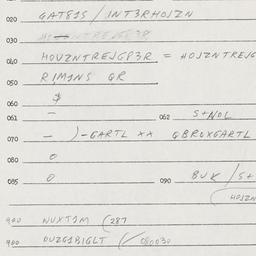 020 GAT81S / INT3RHOJZN
030
040 HOVZNTREJG83R = HOJZNTREJG
050 RIMINS GR
060 $
061 — 062 S+NOL
070 — )-GARTL XX GBROXGARTL
080 0
085 0 090 BUK / S+
(HOJZN
900 WUXT1M (287
900 OUZG1BIGLT (/080030